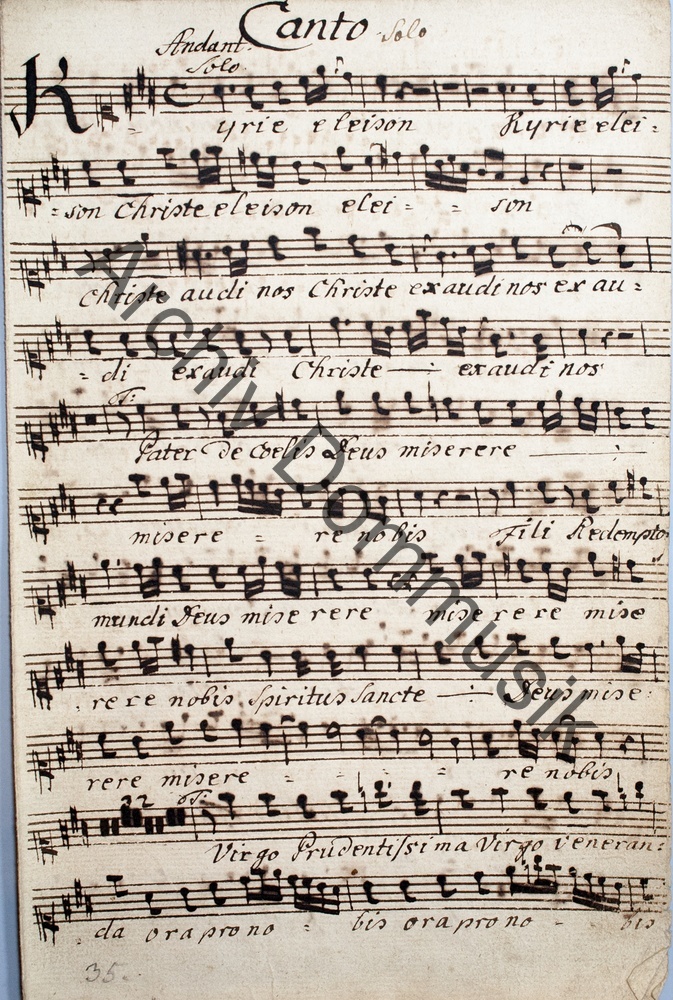 Canto Solo
Andant.
Solo.
Kyrie eleison Kyrie elei:
son Christe eleison elei - - son
Christe audi nos Christe exaudi nos ex au:
di exaudi Christe exaudi nos
Pater de Coelis Deus miserere
misere - re nobis Fili Redempto
mundi Deus miserere miserere mise
rere nobis Spiritus Sancte Deus mise:
rere misere - - - - re nobis
32
Virgo Prudentissima Virgo veneran:
da ora pro no - bis ora pro no - bis
35.
Archiv Dommusik